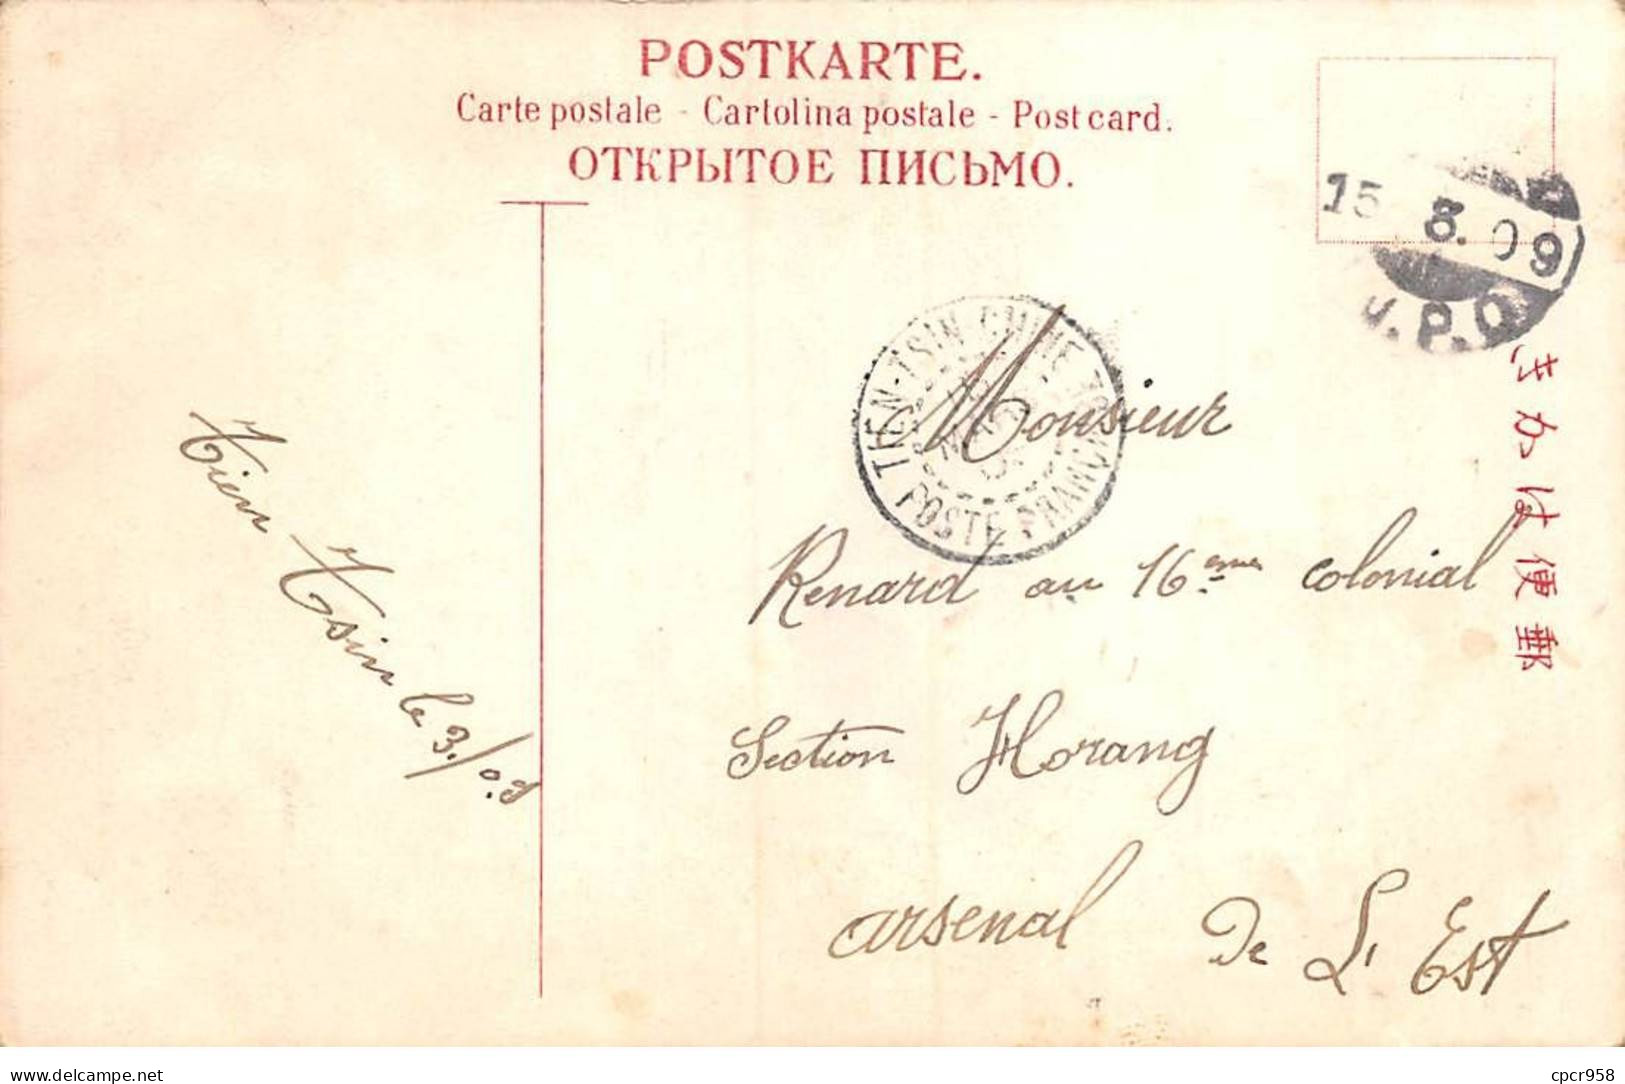 POSTKARTE.
Carte postale - Cartolina postale - Post card.
ОТКРЫТОЕ ПИСЬМО.
15 3. 09
J.P.O
きかは便郵
TIEN-TSIN CHINE
POSTE FRANÇ
Monsieur
Renard au 16eme colonial
Section Horang
arsenal De L'Est
Tien Tsin le 3./09
delcampe.net
cpcr958